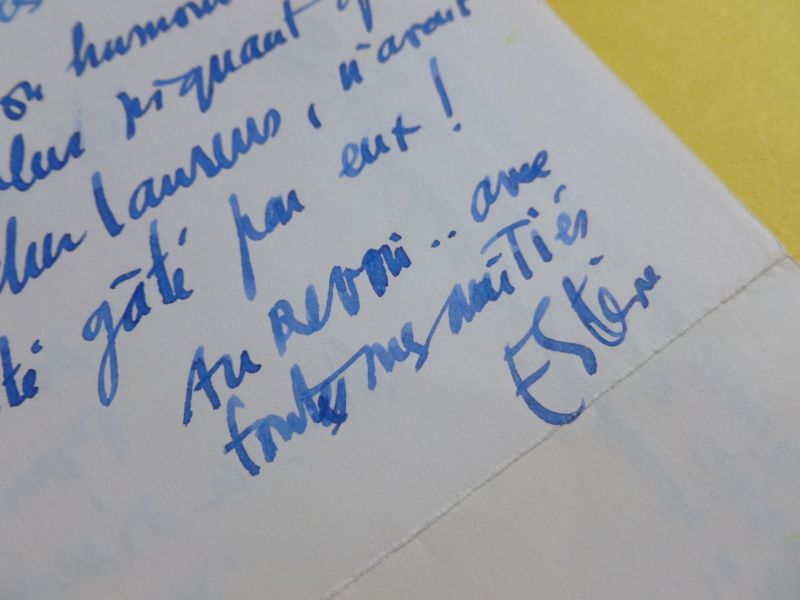 on humour
plus piquant
Laurens, n'avait
té gâté par eux !
Au revoir.. avec
toutes mes amitiés
Estève